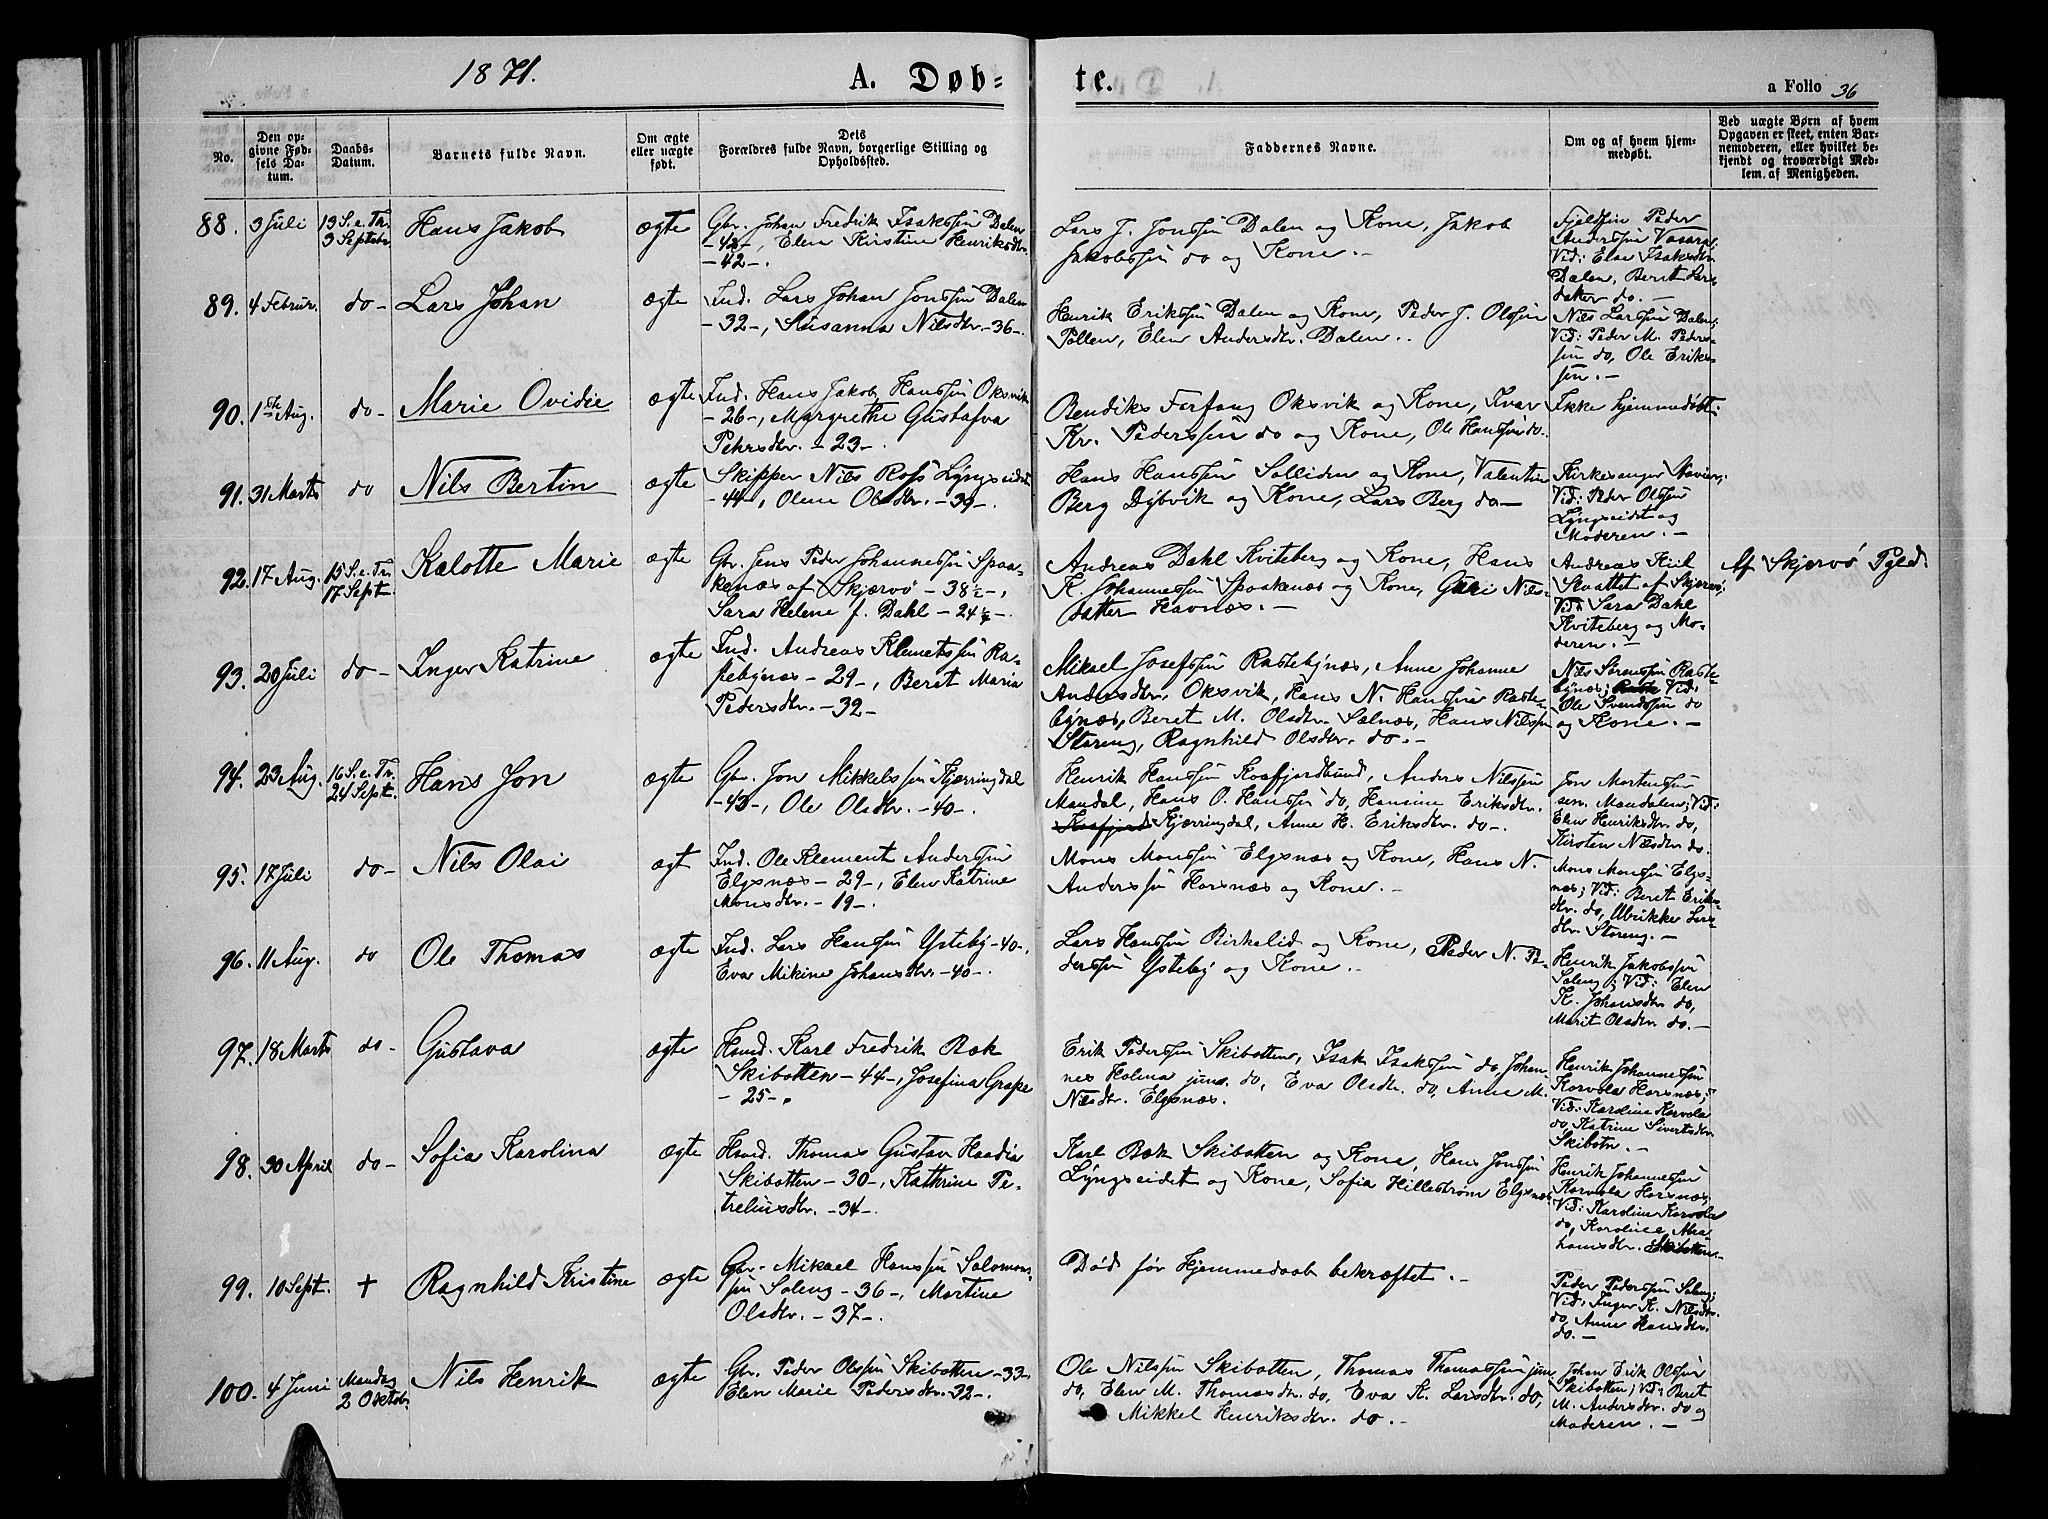 1871.
A. Døb=
te.
a Folio 36
No.
Den op-
givne Fød-
sels Da-
tum.
Daabs-
Datum.
Barnets fulde Navn.
Om ægte
eller uægte
født.
Dets
Forældres fulde Navn, borgerlige Stilling og
Opholdssted.
Faddernes Navne.
Om og af hvem hjem-
medøbt.
Ved uægte Børn af hvem
Opgaven er skeet, enten Bar-
nemoderen, eller hvilket be-
kjendt og troværdigt Med-
lem af Menigheden.
88. 3 Juli
13 S. e. Tr.
3 Septebr
Hans Jakob
ægte
Gbr. Johan Fredrik Isakssøn Dalen
-42-, Elen Kirstine Henriksdtr.
-42-.
Lars J. Jonssøn Dalen og Kone, Jakob
Jakobssøn do og Kone.-
Fjeldfin Peder
Anderssøn Vasara;
Vid: Elen Isaksdtr.
Dalen, Berit Lars-
datter do.-
89. 4 Februr. do- Lars Johan
ægte
Ind. Lars Johan Jonssøn Dalen
-32-, Susanna Nilsdtr.-36-.
Henrik Erikssøn Dalen og Kone, Peder J. Olssøn
Pollen, Elen Andersdtr. Dalen..
Nils Larssøn Dalen;
Vid: Peder M. Peders-
søn do, Ole Eriks-
søn.-
90. 1ste Aug. do- Marie Ovidie
ægte
Ind. Hans Jakob Hanssøn Oksvik
-26-, Margrethe Gustafva
Pehrsdtr. -23-.
Bendiks Forfang Oksvik og Kone, Ivar
Kr. Pederssøn do og Kone, Ole Hanssøn do.
Ikke hjemmedøbt.
91. 31 Marts do Nils Bertin
ægte
Skipper Nils Ross Lyngseidet
-44-, Oline Olsdtr. -39-.
Hans Hanssøn Solliden og Kone, Valentin
Berg Dybvik og Kone, Lars Berg do-
Kirkesanger Stavier;
Vid: Peder Olssøn
Lyngseidet og
Moderen.-
92. 17 Aug.
15 S. e. Tr.
17 Sept.
Kalotte Marie
ægte
Gbr. Jens Peder Johannessøn Spaa-
kenæs af Skjærvø -38½-,
Sara Helene f. Dahl -24½-.
Andreas Dahl Kviteberg og Kone, Hans
K. Johannessøn Spaakenæs og Kone, Guri Nils-
datter Havnæs.-
Andreas Kiil
Skattet af Skjærvø;
Vid: Sara Dahl
Kviteberg og Mo-
deren.-
Af Skjervø Pgld.
93. 20 Juli do- Inger Katrine
ægte
Ind. Andreas Klemetssøn Ra-
stebynæs -29-, Beret Maria
Pedersdtr. -32-
Mikael Josefssøn Rastebynæs, Anne Johanne
Andersdtr. Oksvik, Hans N. Hanssøn Raste-
bynæs, Beret M. Olsdtr. Solnæs, Hans Nilssøn
Storeng, Ragnhild Olsdtr. do.-
Nils Sørenssøn Raste-
bynæs; Vid:
Ole Svendssøn do
og Kone.-
94. 23 Aug.
16 S. e. Tr.
24 Sept.
Hans Jon
ægte
Gbr. Jon Mikkelssøn Kjærringdal
-43-, Ole Olsdtr. -40-.
Henrik Hanssøn Kaafjordbund, Anders Nilssøn
Mandal, Hans O. Hanssøn do, Hansine Eriksdtr.
Kaafjord Kjærringdal, Anne H. Eriksdtr. do-.
Jon Mortenssøn
sen. Mandalen; Vid:
Elen Henriksdtr. do,
Kirsten Nilsdtr. do.
95. 17 Juli do- Nils Olai
ægt
Ind. Ole Klement Anderssøn
Elgsnæs -29-, Elen Katrine
Monsdtr. -19-.
Mons Monssøn Elgsnæs og Kone, Hans N.
Anderssøn Horsnæs og Kone.-
Mons Monssøn Elgs-
næs; Vid: Beret Eriks-
dtr. do, Ulrikke Lars-
dtr. Storeng.-
96. 11 Aug. do Ole Thomas
ægte
Ind. Lars Hanssøn Ysteby-40-,
Eva Mikine Johansdtr.-40-.
Lars Hanssøn Birkelid og Kone, Peder N. Pe-
derssøn Ysteby og Kone.-
Henrik Jakobssøn
Soleng; Vid: Elen
K. Johansdtr. do,
Marit Olsdtr. do.-
97. 18 Marts do- Gustava
ægte
Hmd. Karl Fredrik Bæk
Skibotten -44-, Josefina Grape
-25-.
Erik Pederssøn Skibotten, Isak Isakssøn do, Johan-
nes Holma jun. do, Eva Olsdtr. do, Anne M.
Nilsdtr. Elgsnæs.
Henrik Johannessøn
Korvola Horsnæs;
Vid: Karoline Korvola
do, Katrine Sivertsdtr.
Skibotn.-
98. 30 April do- Sofia Karolina
ægte
Hmd. Thomas Gustav Haadia
Skibotten -30-, Kathrine Pe-
treliusdtr. -34-.
Karl Bæk Skibotten og Kone, Hans Jonssøn
Lyngseidet og Kone, Sofia Hillestrøm Elgsnæs.
Henrik Johannessøn
Korvola Horsnæs;
Vid: Karoline Korvola
do, Karoline Abra-
hamsdtr. Skibotten-
99. 10 Sept. + Ragnhild Kristine
ægte
Gbr. Mikael Hanssøn Salomons-
søn Soleng -36-, Martine
Olsdtr. -37-.
Død før Hjemmedaab bekræftet.-
Peder Pederssøn Soleng;
Vid: Inger K. Nilsdtr.
do, Anne Hansdtr.
do.-
100. 4 Juni
Mandag
2 Oktobr.
Nils Henrik
ægte
Gbr. Peder Olssøn Skibotten -33-
Elen Marie Pedersdtr. -32-.
Ole Nilssøn Skibotten, Thomas Thomassøn jun
do, Elen M. Thomasdtr. do, Eva K. Larsdtr. do,
Mikkel Henriksdtr. do.-
Johan Erik Olssøn
Skibotten; Vid: Beret
M. Andersdtr. do og
Moderen.-